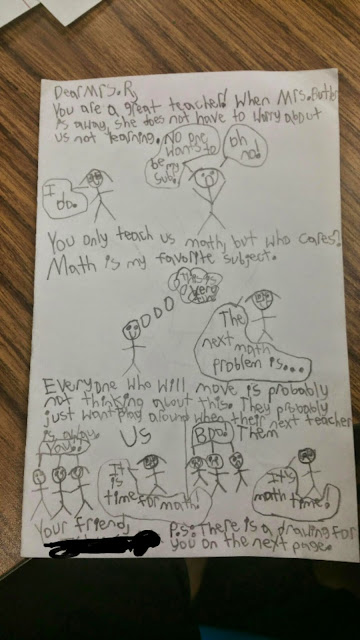 Dear Mrs. R,
You are a great teacher! When Mrs. Butler
is away, she does not have to worry about
us not learning.
No one
wants to
be
my
sub!
oh
no!
I
do.
You only teach us math, but who cares?
Math is my favorite subject.
This is
very
fun!
The
next math
problem is...
Everyone who will move is probably
not thinking about this. They probably
just want play around when their next teacher
is away.
Us
Them
Yay!
It
is
time for math!
Boo!
It's
math
time!
Your friend,
P.S. There is a drawing for
you on the next page.